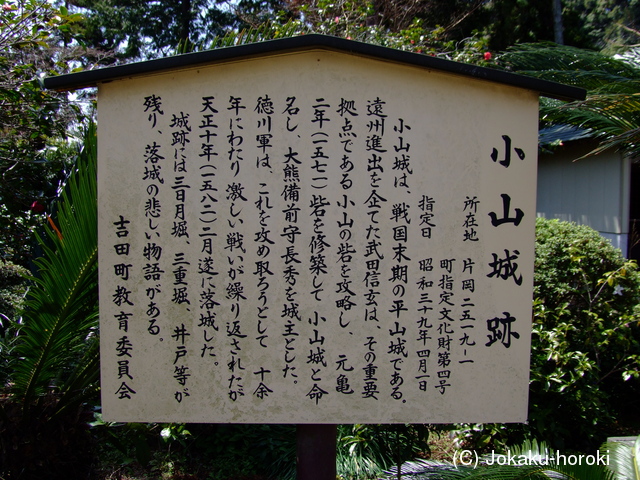 小山城跡
所在地 片岡二五一九ー一
町指定文化財第四号
指定日 昭和三十九年四月一日
小山城は、戦国末期の平山城である。
遠州進出を企てた武田信玄は、その重要
拠点である小山の砦を攻略し、元亀
二年(一五七一)砦を修築して小山城と命
名し、大熊備前守長秀を城主とした。
徳川軍は、これを攻め取ろうとして十余
年にわたり激しい戦いが繰り返されたが
天正十年(一五八二)二月遂に落城した。
城跡には三日月堀、三重堀、井戸等が
残り、落城の悲しい物語がある。
吉田町教育委員会
(C) Jokaku-horoki